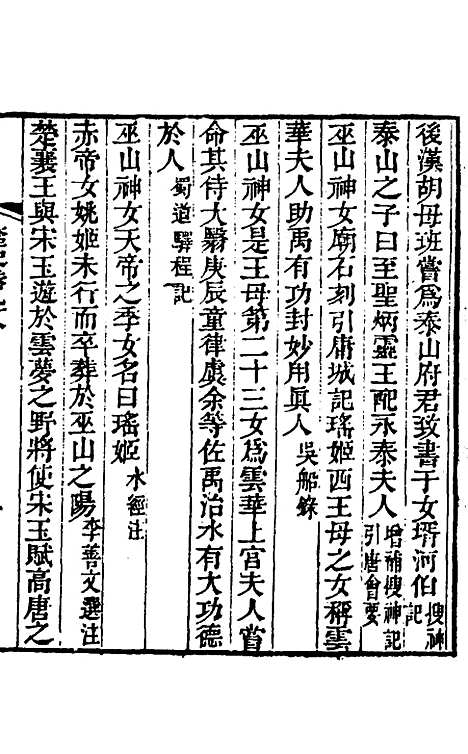 後漢胡母班嘗爲泰山府君致書于女壻河伯搜神記
泰山之子曰至聖炳靈王配永泰夫人增補搜神記引唐會要
巫山神女廟石刻引庸城記瑤姬西王母之女稱雲
華夫人助禹有功封妙用眞人吳船錄
巫山神女是王母第二十三女爲雲華上宮夫人嘗
命其侍大翳庚辰童律虞余等佐禹治水有大功德
於人蜀道驛程記
巫山神女天帝之季女名曰瑤姬水經注
赤帝女姚姬未行而卒葬於巫山之陽李善文選注
楚襄王與宋玉遊於雲夢之野將使宋玉賦高唐之